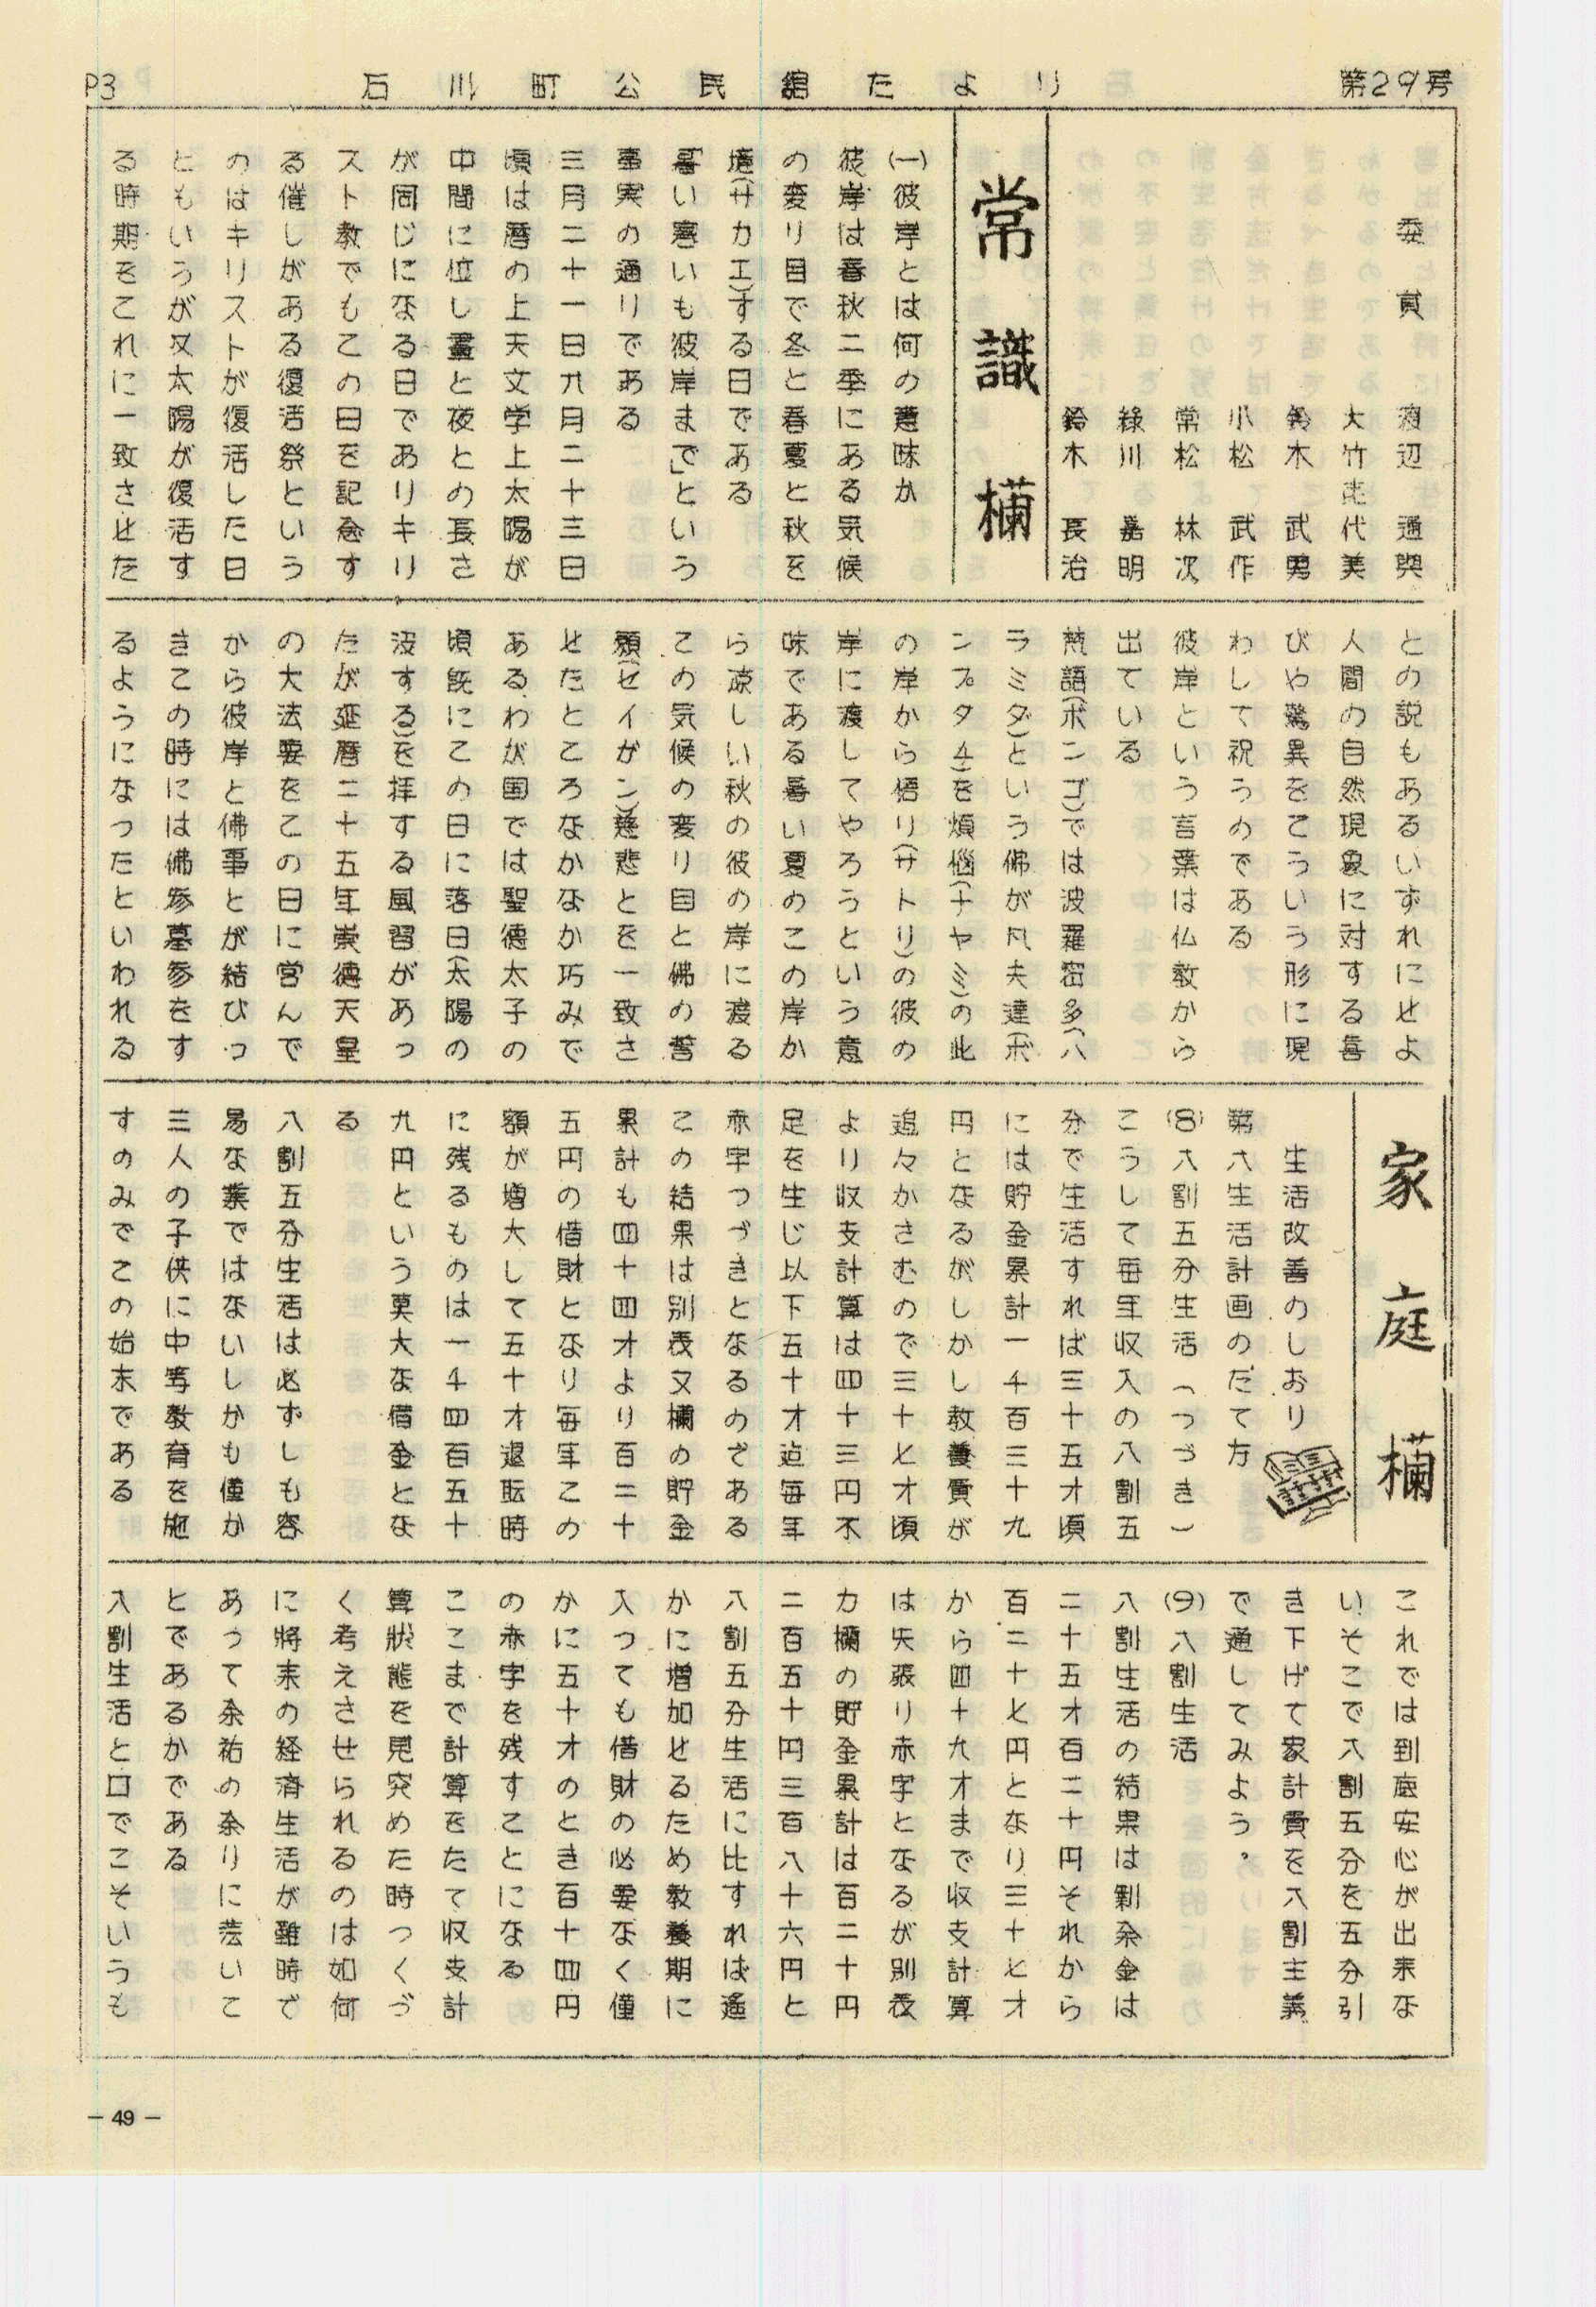 P3
石川町公民舘たより
第29号
委員
渡辺 通興
大竹 代美
鈴木 武男
小松 武作
常松 林次
緑川 嘉明
鈴木 長治
常識欄
(一)彼岸とは何の意味か
彼岸は春秋二季にある気候
の変り目で冬と春夏と秋を
境(サカエ)する日である
「暑い寒いも彼岸まで」という
事実の通りである
三月二十一日九月二十三日
頃は暦の上天文学上太陽が
中間に位し晝と夜との長さ
が同じになる日でありキリ
スト教でもこの日を記念す
る催しがある復活祭という
のはキリストが復活した日
ともいうが又太陽が復活す
る時期をこれに一致させた
との説もあるいずれにせよ
人間の自然現象に対する喜
びや驚異をこういう形に現
わして祝うのである
彼岸という言葉は仏教から
出ている
梵語(ボンゴ)では波羅密多(ハ
ラミダ)という佛が凡夫達(ボ
ンプタチ)を煩悩(ナヤミ)の此
の岸から悟り(サトリ)の彼の
岸に渡してやろうという意
味である暑い夏のこの岸か
ら涼しい秋の彼の岸に渡る
この気候の変り目と佛の誓
願(セイガン)慈悲とを一致さ
せたところなかなか巧みで
あるわが国では聖徳太子の
頃既にこの日に落日(太陽の
没する)を拝する風習があっ
たが延暦二十五年崇徳天皇
の大法要をこの日に営んで
から彼岸と佛事とが結びつ
きこの時には佛参墓参をす
るようになったといわれる
家庭欄
生活改善のしおり
第八生活計画のたて方
(8)八割五分生活(つづき)
こうして毎年収入の八割五
分で生活すれば三十五才頃
には貯金累計一千百三十九
円となるがしかし教養費が
追々かさむので三十七才頃
より収支計算は四十三円不
足を生じ以下五十才迠毎年
赤字つづきとなるのである
この結果は別表又欄の貯金
累計も四十四才より百二十
五円の借財となり毎年この
額が増大して五十才退転時
に残るものは一千四百五十
九円という莫大な借金とな
る
八割五分生活は必ずしも容
易な業ではないしかも僅か
三人の子供に中等教育を施
すのみでこの始末である
これでは到底安心が出来な
いそこで八割五分を五分引
き下げて家計費を八割主義
で通してみよう。
(9)八割生活
八割生活の結果は剰余金は
二十五才百二十円それから
百二十七円となり三十七才
から四十九才まで収支計算
は矢張り赤字となるが別表
カ欄の貯金累計は百二十円
二百五十円三百八十六円と
八割五分生活に比すれば遙
かに増加せるため教養期に
入つても借財の必要なく僅
かに五十才のとき百十四円
の赤字を残すことになる
ここまで計算をたて収支計
算狀態を見究めた時つくづ
く考えさせられるのは如何
に將来の経済生活が難時で
あって余祐の余りに薄いこ
とであるかである
八割生活と口でこそいうも
- 49 -